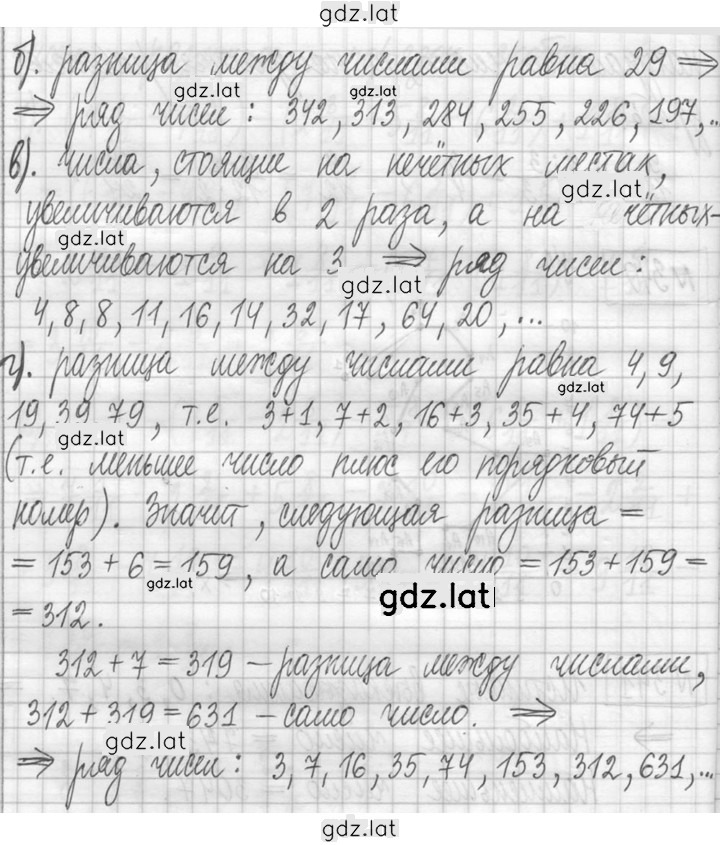 gdz.lat
б). разница между числами равна 29 ⇒
gdz.lat gdz.lat
⇒ ряд чисел: 342, 313, 284, 255, 226, 197,..
в). числа, стоящие на нечётных местах,
gdz.lat
увеличиваются в 2 раза, а на чётных-
gdz.lat
увеличиваются на 3 ⇒ ряд чисел:
gdz.lat
4, 8, 8, 11, 16, 14, 32, 17, 64, 20, ...
г). разница между числами равна 4, 9,
gdz.lat
19, 39, 79, т.е. 3+1, 7+2, 16+3, 35+4, 74+5
gdz.lat
(т.е. меньшее число плюс его порядковый
номер). Значит, следующая разница =
= 153 + 6 = 159, а само число = 153 + 159 =
gdz.lat
gdz.lat
= 312.
312 + 7 = 319 – разница между числами,
312 + 319 = 631 – само число. ⇒
gdz.lat
⇒ ряд чисел: 3, 7, 16, 35, 74, 153, 312, 631,...
gdz.lat